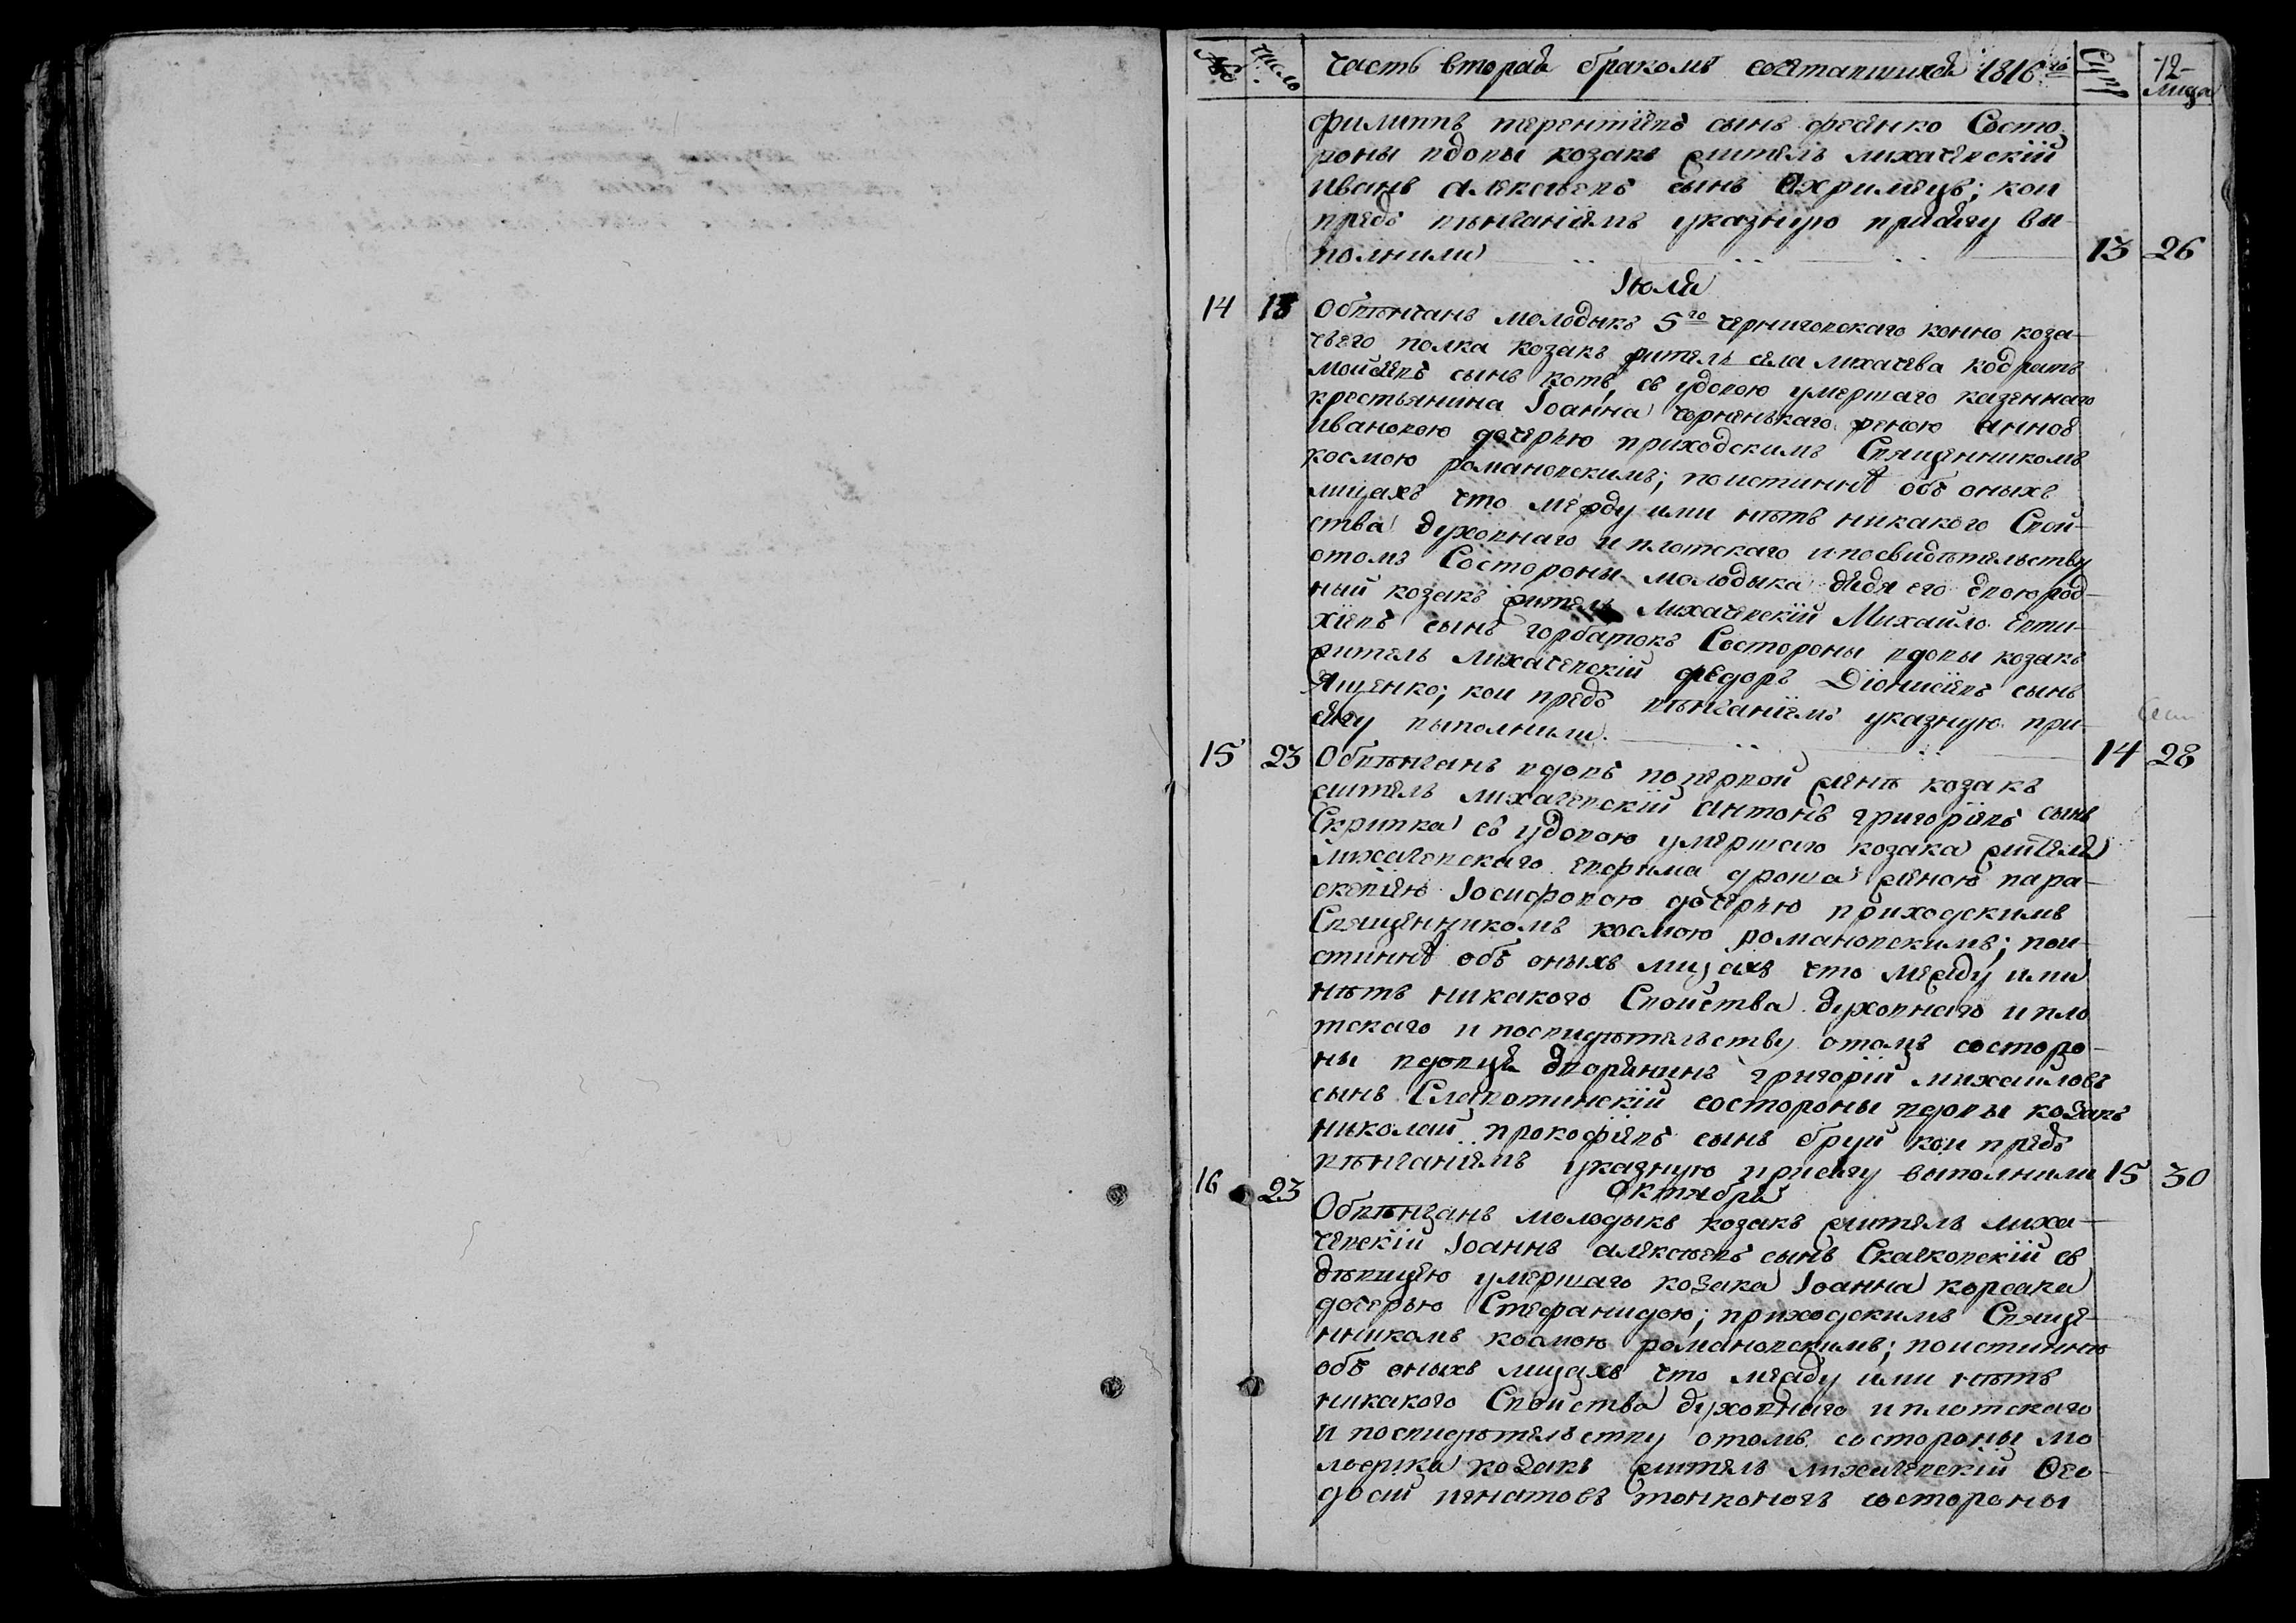 № число Часть вторая бракомъ сочетавшихся 1816го Суп 12 лица
филиппъ терентіевъ сынъ Состо
роны вдовы козакъ житель лихачевскій
иванъ алексѣевъ сынъ Охримецъ; кои
предъ вѣнчаніемъ указную присягу вы-
полнили 13 26
Іюля
14 18 Обвѣнчанъ молодикъ 5го черниговскаго конно коза-
чьего полка козакъ житель села лихачева кодратъ
мойсѣевъ сынъ котъ, съ удовою умершаго казеннаго
крестьянина Іоанна чорненькаго женою анною
ивановою дочерью приходскимъ Священникомъ
космою романовскимъ; поистиннѣ объ оныхъ
лицахъ что между ими нѣтъ никакого Свой-
ства духовнаго и плотскаго и посвидѣтельству
отомъ Состороны молодика дядя его двоюрод-
ный козакъ житель лихачевскій Михайло евти-
хіевъ сынъ горбатокъ Состороны вдовы козакъ
житель лихачевскій федоръ Діонисіевъ сынъ
Ященко; кои предъ вѣнчаніемъ указную при-
сягу выполнили. 14 28
15 23 Обвѣнчанъ вдовъ попервой женѣ козакъ
житель лихачевскій антонъ григоріевъ сынъ
Скрипка съ удовою умершаго козака жителя
лихачевскаго ефрима дроша женою пара-
скевіею Іосифовою дочерью приходскимъ
Священникомъ космою романовскимъ; пои-
стиннѣ объ оныхъ лицахъ что между ими
нѣтъ никакого Свойства духовнаго и пло
тскаго и посвидѣтельству отомъ состоро-
ны вдовца дворянинъ григорій михаиловъ
сынъ состороны вдовы козакъ
николай прокофіевъ сынъ бруй кои предъ
вѣнчаніемъ указную присягу выполнили 15 30
Октября
16 23 Обвѣнчанъ молодикъ козакъ житель лиха-
чевскій Іоаннъ алексѣевъ сынъ съ
дѣвицею умершаго козака Іоанна корсака
дочерью Стефанидою; приходскимъ Свяще-
нникомъ космою романовскимъ; поистинню
объ оныхъ лицахъ что между ими нѣтъ
никакого Свойства духовнаго и плотскаго
и посвидѣтельству отомъ состороны мо
лодика козакъ житель лихачевскій Ѳео-
досій игнатовъ тонконогъ состороны